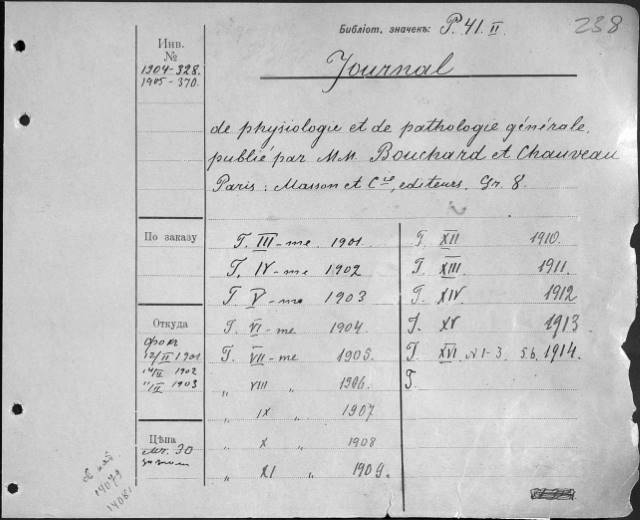 Библіот. значекъ: P. 41. II
238
Инв.
№
1904-328.
1905-370.
Journal
de physiologie et de pathologie générale.
publié par MM Bouchard et Chauveau
Paris: Masson et Cie, editeurs. Gr. 8.
По заказу
T. III-me 1901.
T. IV-me 1902
T V-me 1903
T. VI-me 1904.
T. VII-me 1905.
„ VIII „ 1906.
„ IX „ 1907
„ X „ 1908
„ XI „ 1909.
T. XII 1910.
T. XIII 1911.
T. XIV 1912
T. XV 1913.
T. XVI. N 1-3 5.6. 1914.
T.
Откуда
1901
1902
1903
Цѣна
30
14079
14081